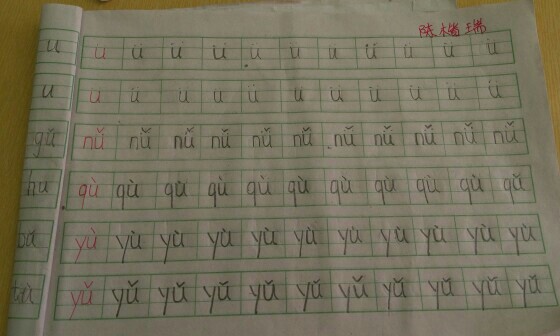 ü ü ü ü ü ü ü ü ü ü ü
ü ü ü ü ü ü ü ü ü ü ü
nǚ nǚ nǚ nǚ nǚ nǚ nǚ nǚ nǚ nǚ nǚ
qù qù qù qù qù qù qù qù qù qù qǔ
yù yù yù yù yù yù yù yù yù yù yù
yǔ yǔ yǔ yǔ yǔ yǔ yǔ yǔ yǔ yǔ yǔ